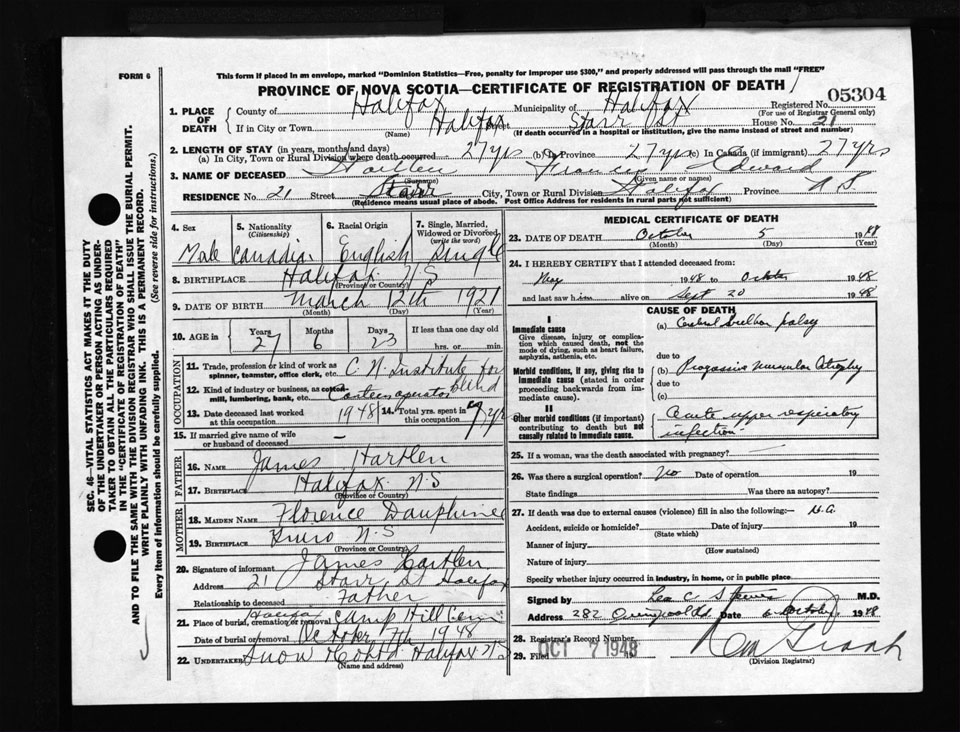 FORM 6
This form if placed in an envelope, marked "Dominion Statistics—Free, penalty for improper use $300," and properly addressed will pass through the mail "FREE"
PROVINCE OF NOVA SCOTIA—CERTIFICATE OF REGISTRATION OF DEATH
Registered No. 05304
(For use of Registrar General only)
1. PLACE OF DEATH
County of Halifax Municipality of Halifax
If in City or Town Halifax Street Starr St House No. 21
(Name) (If death occurred in a hospital or institution, give the name instead of street and number)
2. LENGTH OF STAY (in years, months and days)
(a) In City, Town or Rural Division where death occurred 27 yrs (b) Province 27 yrs (c) In Canada (if immigrant) 27 yrs
3. NAME OF DECEASED Hartlen Francis Edward
(Surname) (Given name or names)
RESIDENCE No. 21 Street Starr City, Town or Rural Division Halifax Province N S
(Residence means usual place of abode. Post Office Address for residents in rural parts not sufficient)
4. Sex Male
5. Nationality (Citizenship) Canadian
6. Racial Origin English
7. Single, Married, Widowed or Divorced (write the word) Single
8. BIRTHPLACE Halifax N S
(Province or Country)
9. DATE OF BIRTH March 12th 1921
(Month) (Day) (Year)
10. AGE in Years 27 Months 6 Days 23 If less than one day old
hrs. or min.
OCCUPATION
11. Trade, profession or kind of work as spinner, teamster, office clerk, etc. C. N. Institute for blind
12. Kind of industry or business, as cotton mill, lumbering, bank, etc. Canteen operator
13. Date deceased last worked at this occupation 1948
14. Total yrs. spent in this occupation yr
15. If married give name of wife or husband of deceased —
FATHER
16. NAME James Hartlen
17. BIRTHPLACE Halifax N.S
(Province or Country)
MOTHER
18. MAIDEN NAME Florence Dauphinee
19. BIRTHPLACE Truro N.S
(Province or Country)
20. Signature of informant James Hartlen
Address 21 Starr St Halifax
Relationship to deceased Father
21. Place of burial, cremation or removal Halifax Camp Hill Cem
Date of burial or removal October 7th 1948
22. UNDERTAKER Snow & Co Ltd Halifax N S
(Name and address)
MEDICAL CERTIFICATE OF DEATH
23. DATE OF DEATH October 5 1948
(Month) (Day) (Year)
24. I HEREBY CERTIFY that I attended deceased from:
May 1948 to October 1948
and last saw him alive on Sept 20 1948
CAUSE OF DEATH
I
Immediate cause
Give disease, injury or complication which caused death, not the mode of dying, such as heart failure, asphyxia, asthenia, etc.
(a) palsy
due to
Morbid conditions, if any, giving rise to immediate cause (stated in order proceeding backwards from immediate cause).
(b) Progressive Muscular Atrophy
due to
(c)
II
Other morbid conditions (if important) contributing to death but not causally related to immediate cause.
Acute upper respiratory infection
25. If a woman, was the death associated with pregnancy?
26. Was there a surgical operation? No Date of operation 19
State findings Was there an autopsy?
27. If death was due to external causes (violence) fill in also the following:—
Accident, suicide or homicide? Date of injury 19
(State which)
Manner of injury
(How sustained)
Nature of injury
Specify whether injury occurred in industry, in home, or in public place
Signed by Leo C M.D.
Address 282 Date 6 October 1948
28. Registrar's Record Number
29. Filed OCT 7 1948
(Division Registrar)
SEC. 46—VITAL STATISTICS ACT MAKES IT THE DUTY
OF THE UNDERTAKER OR PERSON ACTING AS UNDER-
TAKER TO OBTAIN ALL THE PARTICULARS REQUIRED
IN THE "CERTIFICATE OF REGISTRATION OF DEATH"
AND TO FILE THE SAME WITH THE DIVISION REGISTRAR WHO SHALL ISSUE THE BURIAL PERMIT.
WRITE PLAINLY WITH UNFADING INK. THIS IS A PERMANENT RECORD.
Every item of information should be carefully supplied. (See reverse side for instructions.)